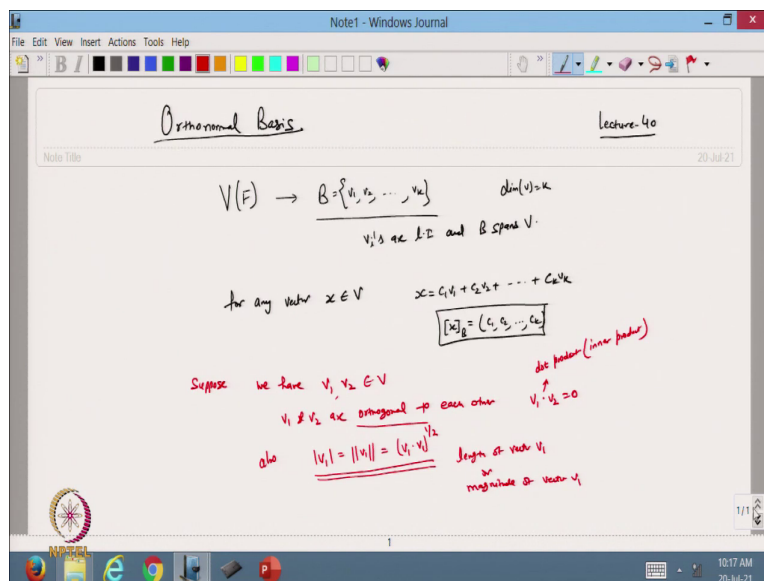 Note1 - Windows Journal
File Edit View Insert Actions Tools Help
Orthonormal Basis
Lecture-40
Note Title
20-Jul-21
V(F) → B={v₁, v₂, ..., vₖ} dim(V)=k
vᵢ's are l.I and B spans V.
for any vector x ∈ V x = c₁v₁ + c₂v₂ + ... + cₖvₖ
[x]_B = (c₁, c₂, ..., cₖ)
dot product (inner product)
Suppose we have v₁, v₂ ∈ V
v₁ & v₂ are orthogonal to each other v₁·v₂ = 0
also |v₁| = ||v₁|| = (v₁·v₁)^1/2 length of vector v₁
or
magnitude of vector v₁
1/1
1
NPTEL
10:17 AM
20-Jul-21